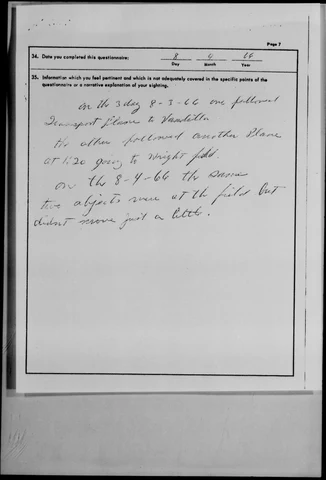 Page 7
34. Date you completed this questionnaire: 8 9 66
Day Month Year
35. Information which you feel pertinent and which is not adequately covered in the specific points of the
questionnaire or a narrative explanation of your sighting.
on the 3 day 8-3-66 one followed
Transport Plane to Vandalia
the other followed another Plane
at 1:20 going to Wright field.
on the 8-4-66 the same
two objects were at the field but
didnt move just a little.